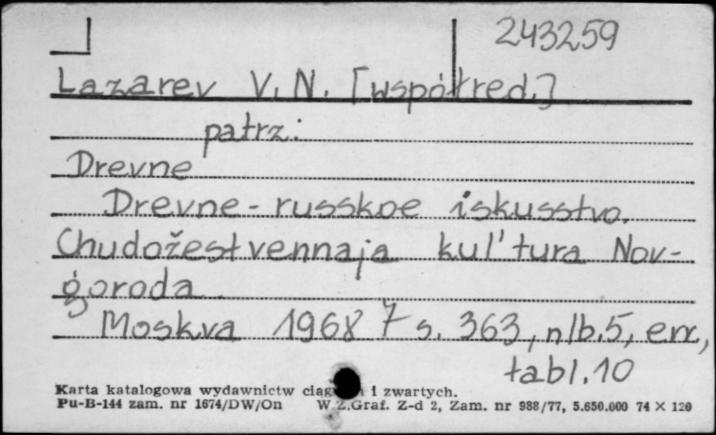 243259
Lazarev V. N. [współred.]
patrz:
Drevne
Drevne-russkoe iskusstvo.
Chudožestvennaja kul'tura Nov-
goroda
Moskva 1968 7 s. 363, nlb. 5, err,
tabl. 10
Karta katalogowa wydawnictw ciągłych i zwartych.
Pu-B-144 zam. nr 1674/DW/On W.Z.Graf. Z-d 2, Zam. nr 988/77, 5.650.000 74 × 120